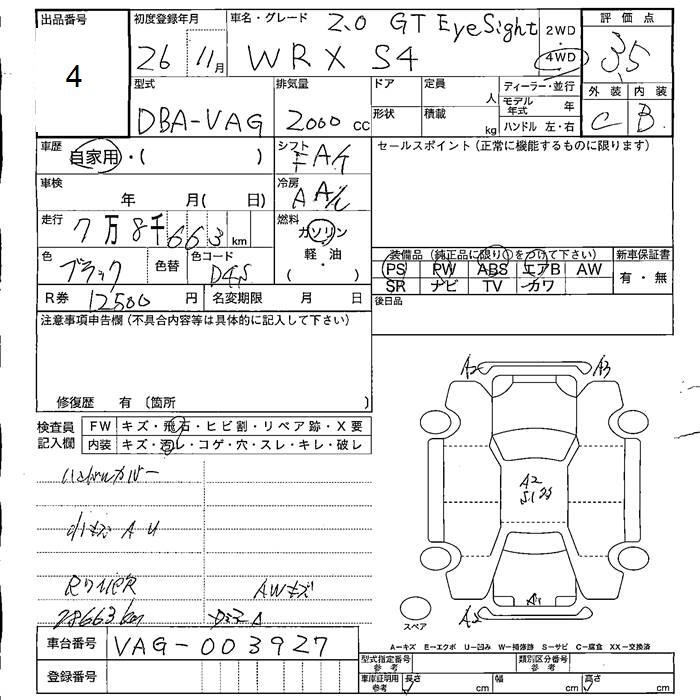 出品番号
4
初度登録年月
26 11月
車名・グレード 2.0 GT EyeSight
WRX S4
2WD
・
4WD
評価点
3.5
外装 内装
C B
型式
DBA-VAG
排気量
2000 cc
ドア
形状
定員
人
積載
kg
ディーラー・並行
モデル年式 年
ハンドル 左・右
車歴
自家用・( )
シフト
FA/T
セールスポイント(正常に機能するものに限ります)
車検
年 月( 日)
冷房
A A/C
走行
7万8千663km
燃料
ガソリン
軽・油
( )
色
ブラック
色替
色コード
D4S
装備品(純正品に限り○をつけて下さい)
PS PW ABS エアB AW
SR ナビ TV カワ
新車保証書
有・無
R券 12500 円
名変期限 月 日
後日品
注意事項申告欄(不具合内容等は具体的に記入して下さい)
修復歴 有 〔箇所 〕
検査員
記入欄
FW キズ・飛石・ヒビ割・リペア跡・X要
内装 キズ・汚レ・コゲ・穴・スレ・キレ・破レ
ハンドルカバー
小キズ A U
RワイパR
AWキズ
78663km
A2
A3
A2
S1
A1
A2
スペア
車台番号 VAG-003927
登録番号
A-キズ E-エクボ U-凹み W-補修跡 S-サビ C-腐食 XX-交換済
型式指定番号
参考
類別区分番号
参考
車庫証明用
参考
長さ cm
幅 cm
高さ cm